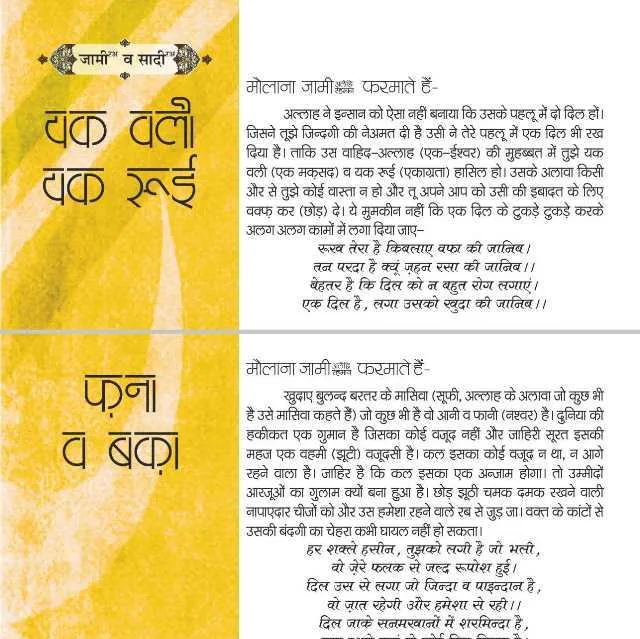 जामी™ व सादी™
यक वली
यक रूई
मौलाना जामी फरमाते हैं-
अल्लाह ने इन्सान को ऐसा नहीं बनाया कि उसके पहलू में दो दिल हों।
जिसने तूझे ज़िन्दगी की नेअमत दी है उसी ने तेरे पहलू में एक दिल भी रख
दिया है। ताकि उस वाहिद-अल्लाह (एक-ईश्वर) की मुहब्बत में तुझे यक
वली (एक मक़सद) व यक रूई (एकाग्रता) हासिल हो। उसके अलावा किसी
और से तुझे कोई वास्ता न हो और तू अपने आप को उसी की इबादत के लिए
वक्फ़ कर (छोड़) दे। ये मुमकीन नहीं कि एक दिल के टुकड़े टुकड़े करके
अलग अलग कामों में लगा दिया जाए-
रूख तेरा है किबलाए वफा की जानिब।
तन परदा है क्यूं ज़हन रसा की जानिब।।
बेहतर है कि दिल को न बहुत रोग लगाएं।
एक दिल है, लगा उसको खुदा की जानिब।।
फ़ना
व बक़ा
मौलाना जामी फरमाते हैं-
खुदाए बुलन्द बरतर के मासिवा (सूफी, अल्लाह के अलावा जो कुछ भी
है उसे मासिवा कहते हैं) जो कुछ भी है वो आनी व फानी (नश्वर) है। दुनिया की
हकीकत एक गुमान है जिसका कोई वजूद नहीं और जाहिरी सूरत इसकी
महज एक वहमी (झूटी) वजूदसी है। कल इसका कोई वजूद न था, न आगे
रहने वाला है। जाहिर है कि कल इसका एक अन्जाम होगा। तो उम्मीदों
आरजूओं का गुलाम क्यों बना हुआ है। छोड़ झूठी चमक दमक रखने वाली
नापाएदार चीजों को और उस हमेशा रहने वाले रब से जुड़ जा। वक्त के कांटों से
उसकी बंदगी का चेहरा कभी घायल नहीं हो सकता।
हर शक्ले हसीन, तुझको लगी है जो भली,
वो ज़ेरे फलक से जल्द रूपोश हुई।
दिल उस से लगा जो जिन्दा व पाइन्दान है,
वो ज़ात रहेगी और हमेशा से रही।।
दिल जाके सनमखानों में शरमिन्दा है,